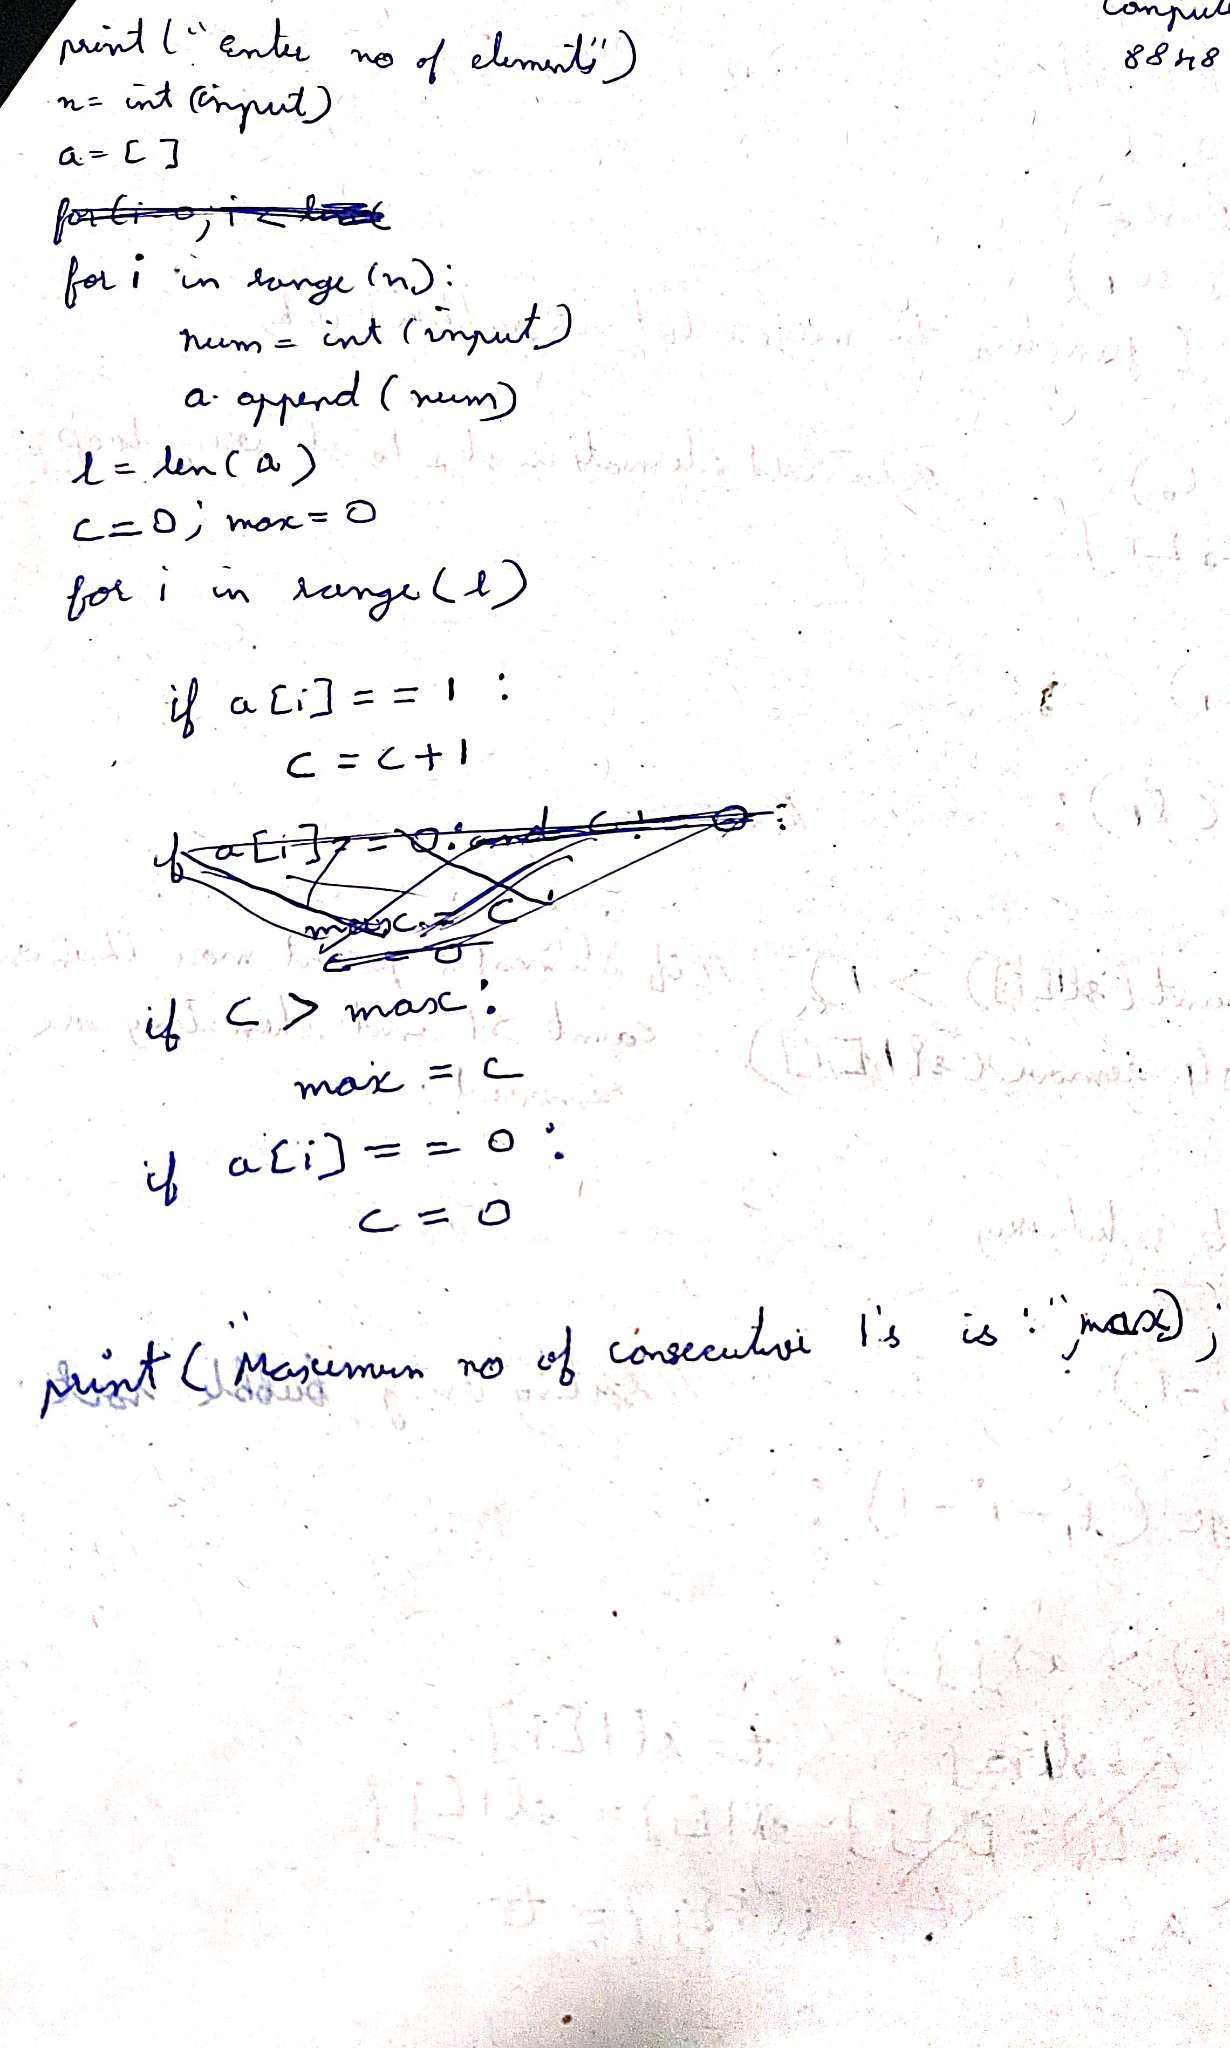 Compute
8848
print ("Enter no of elements")
n = int (input)
a = [ ]
for i in range (n):
num = int (input)
a. append (num)
l = len ( a )
c = 0 ; max = 0
for i in range ( l )
if a [i] = = 1 :
c = c + 1
if a [i] = = 0 : and c ! = 0 :
max = c
c = 0
if c > max :
max = c
if a [i] = = 0 :
c = 0
print ( "Maximum no of consecutive 1's is : ", max ) ;